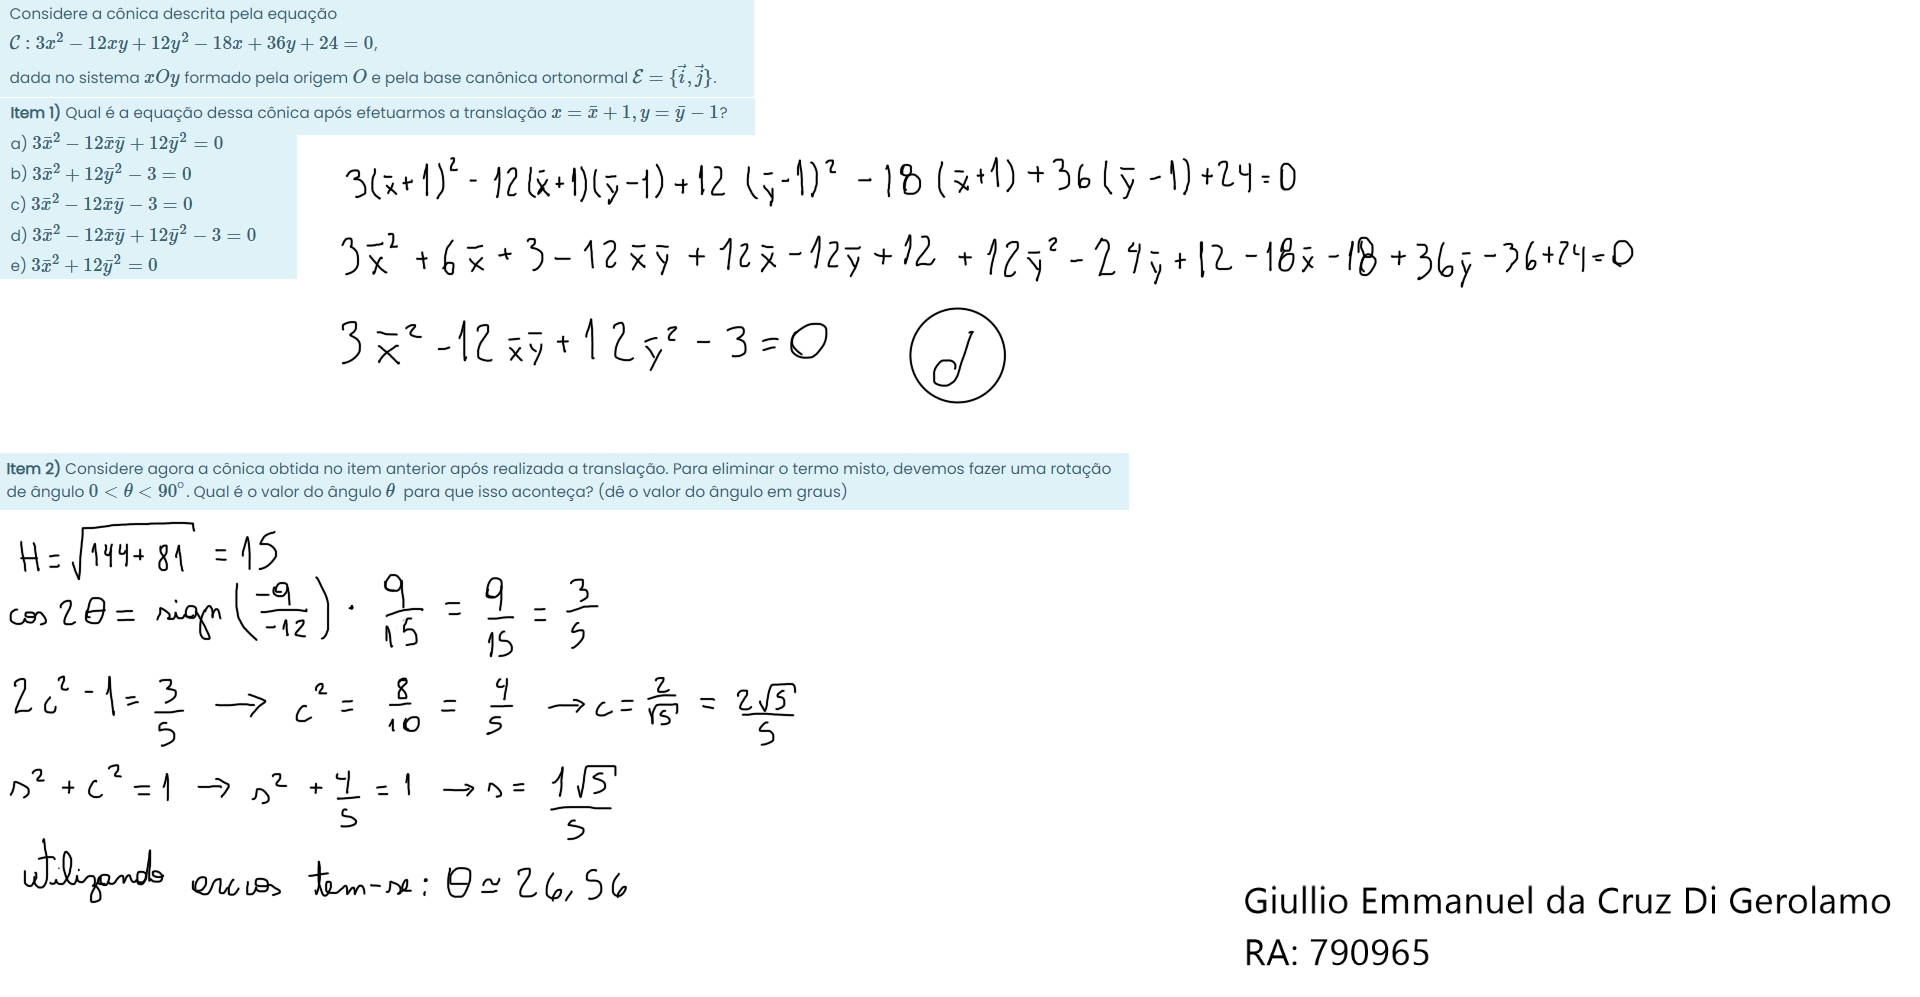 Considere a cônica descrita pela equação
𝒞 : 3x² − 12xy + 12y² − 18x + 36y + 24 = 0,
dada no sistema xOy formado pela origem O e pela base canônica ortonormal ℰ = {i⃗, j⃗}.
Item 1) Qual é a equação dessa cônica após efetuarmos a translação x = x̄ + 1, y = ȳ − 1?
a) 3x̄² − 12x̄ȳ + 12ȳ² = 0
b) 3x̄² + 12ȳ² − 3 = 0
c) 3x̄² − 12x̄ȳ − 3 = 0
d) 3x̄² − 12x̄ȳ + 12ȳ² − 3 = 0
e) 3x̄² + 12ȳ² = 0
3(x̄+1)² - 12(x̄+1)(ȳ-1) + 12(ȳ-1)² - 18(x̄+1) + 36(ȳ-1) + 24 = 0
3x̄² + 6x̄ + 3 - 12x̄ȳ + 12x̄ - 12ȳ + 12 + 12ȳ² - 24ȳ + 12 - 18x̄ - 18 + 36ȳ - 36 + 24 = 0
3x̄² - 12x̄ȳ + 12ȳ² - 3 = 0 d
Item 2) Considere agora a cônica obtida no item anterior após realizada a translação. Para eliminar o termo misto, devemos fazer uma rotação
de ângulo 0 < θ < 90°. Qual é o valor do ângulo θ para que isso aconteça? (dê o valor do ângulo em graus)
H = √(144 + 81) = 15
cos 2θ = sign (-9/-12) · 9/15 = 9/15 = 3/5
2c² - 1 = 3/5 → c² = 8/10 = 4/5 → c = 2/√5 = 2√5/5
s² + c² = 1 → s² + 4/5 = 1 → s = 1√5/5
utilizando arcos tem-se: θ ≃ 26,56
Giullio Emmanuel da Cruz Di Gerolamo
RA: 790965